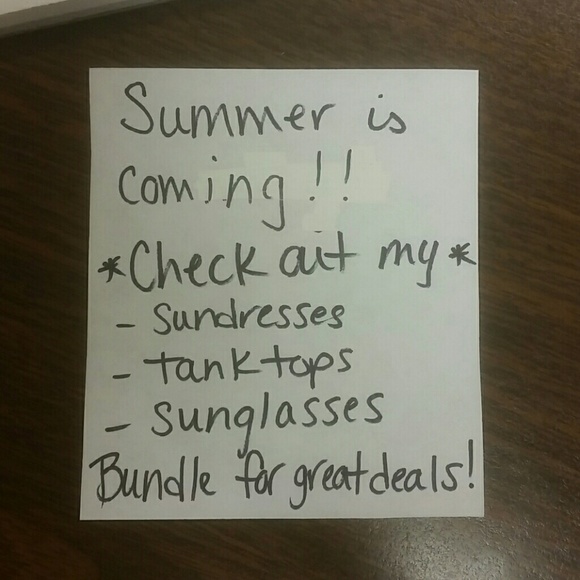 Summer is
coming!!
*Check out my*
- Sundresses
- tank tops
- Sunglasses
Bundle for great deals!